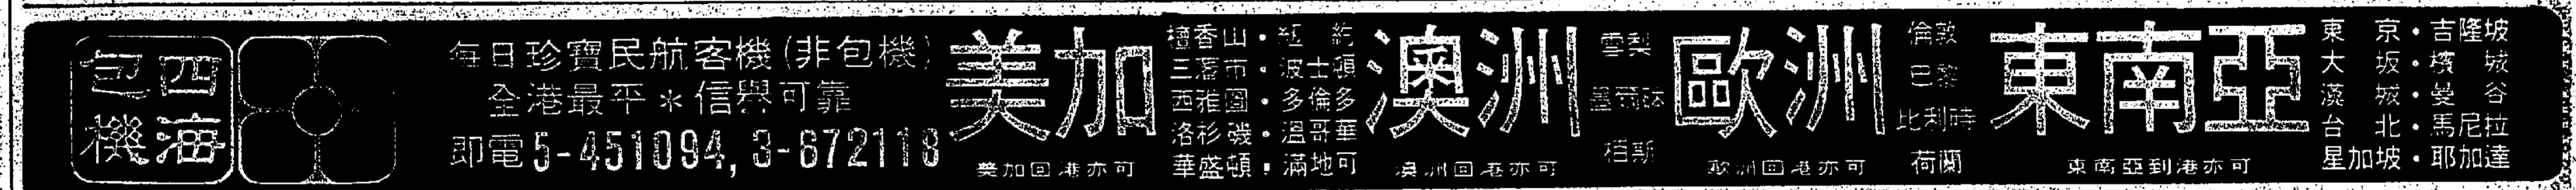 四海
包機
每日珍寶民航客機(非包機)
全港最平*信譽可靠
即電5-451094,3-672118
美加
美加回港亦可
檀香山·紐約
三藩市·波士頓
西雅圖·多倫多
洛杉磯·溫哥華
華盛頓·滿地可
澳洲
澳洲回港亦可
雪梨
墨爾砵
栢斯
歐洲
歐洲回港亦可
倫敦
巴黎
比利時
荷蘭
東南亞
東南亞到港亦可
東京·吉隆坡
大坂·檳城
漢城·曼谷
台北·馬尼拉
星加坡·耶加達